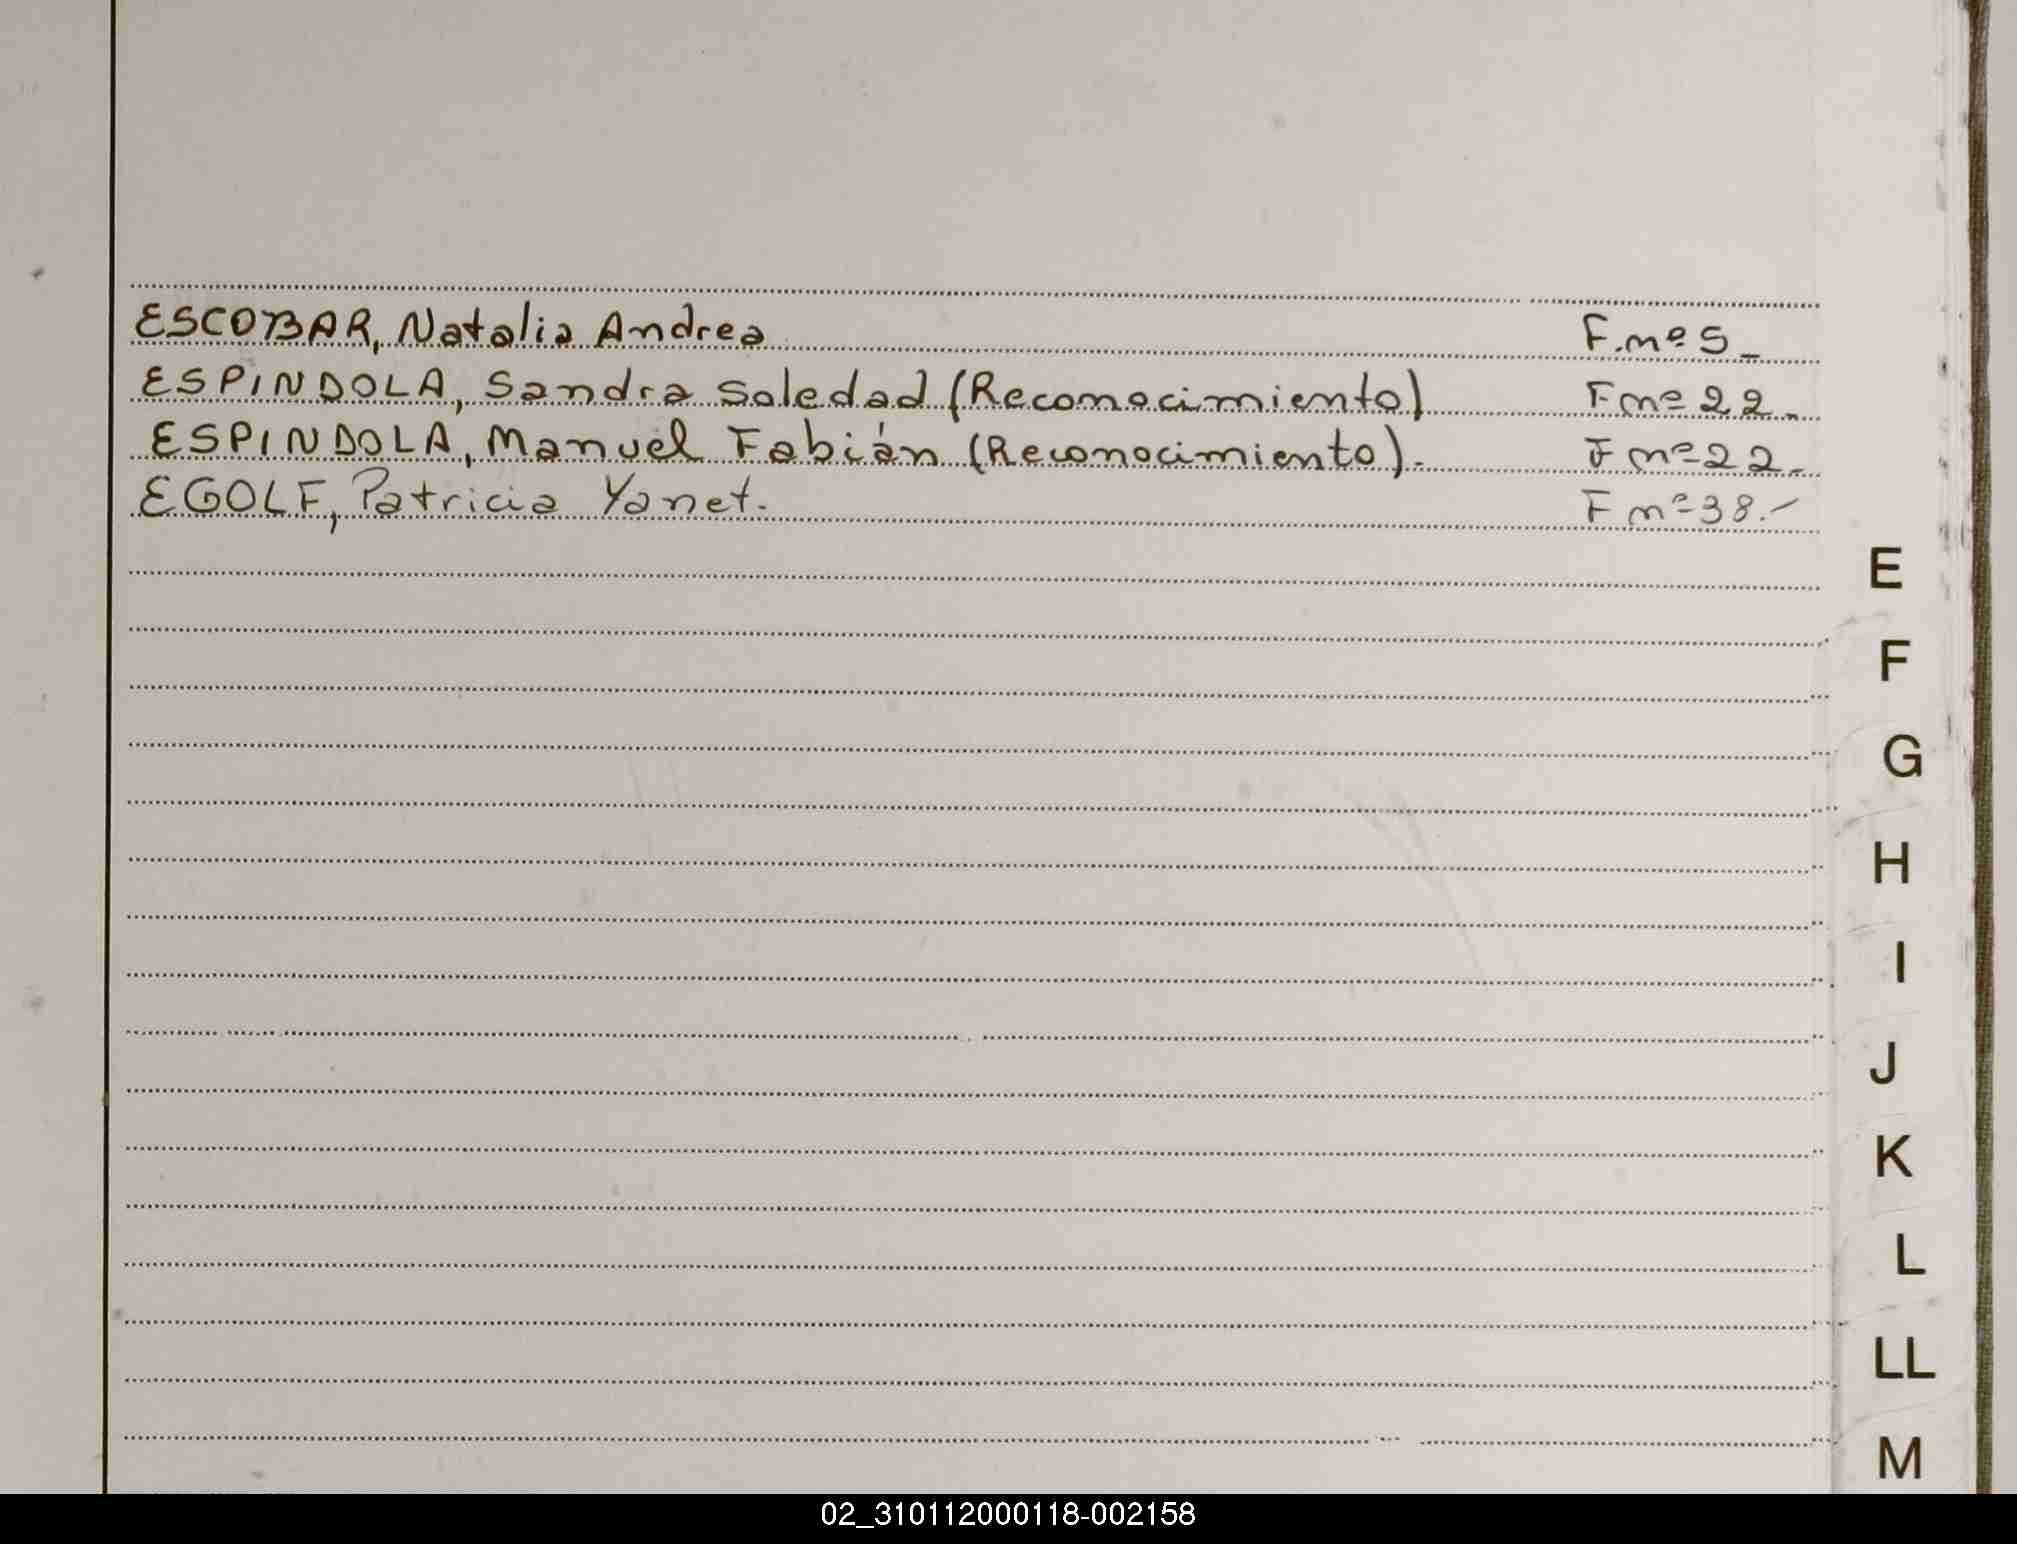 ESCOBAR, Natalia Andrea F. nº 5_
ESPINDOLA, Sandra Soledad (Reconocimiento) F nº 22.
ESPINDOLA, Manuel Fabián (Reconocimiento). F nº 22.
EGOLF, Patricia Yanet. F nº 38.-
E
F
G
H
I
J
K
L
LL
M
02_310112000118-002158